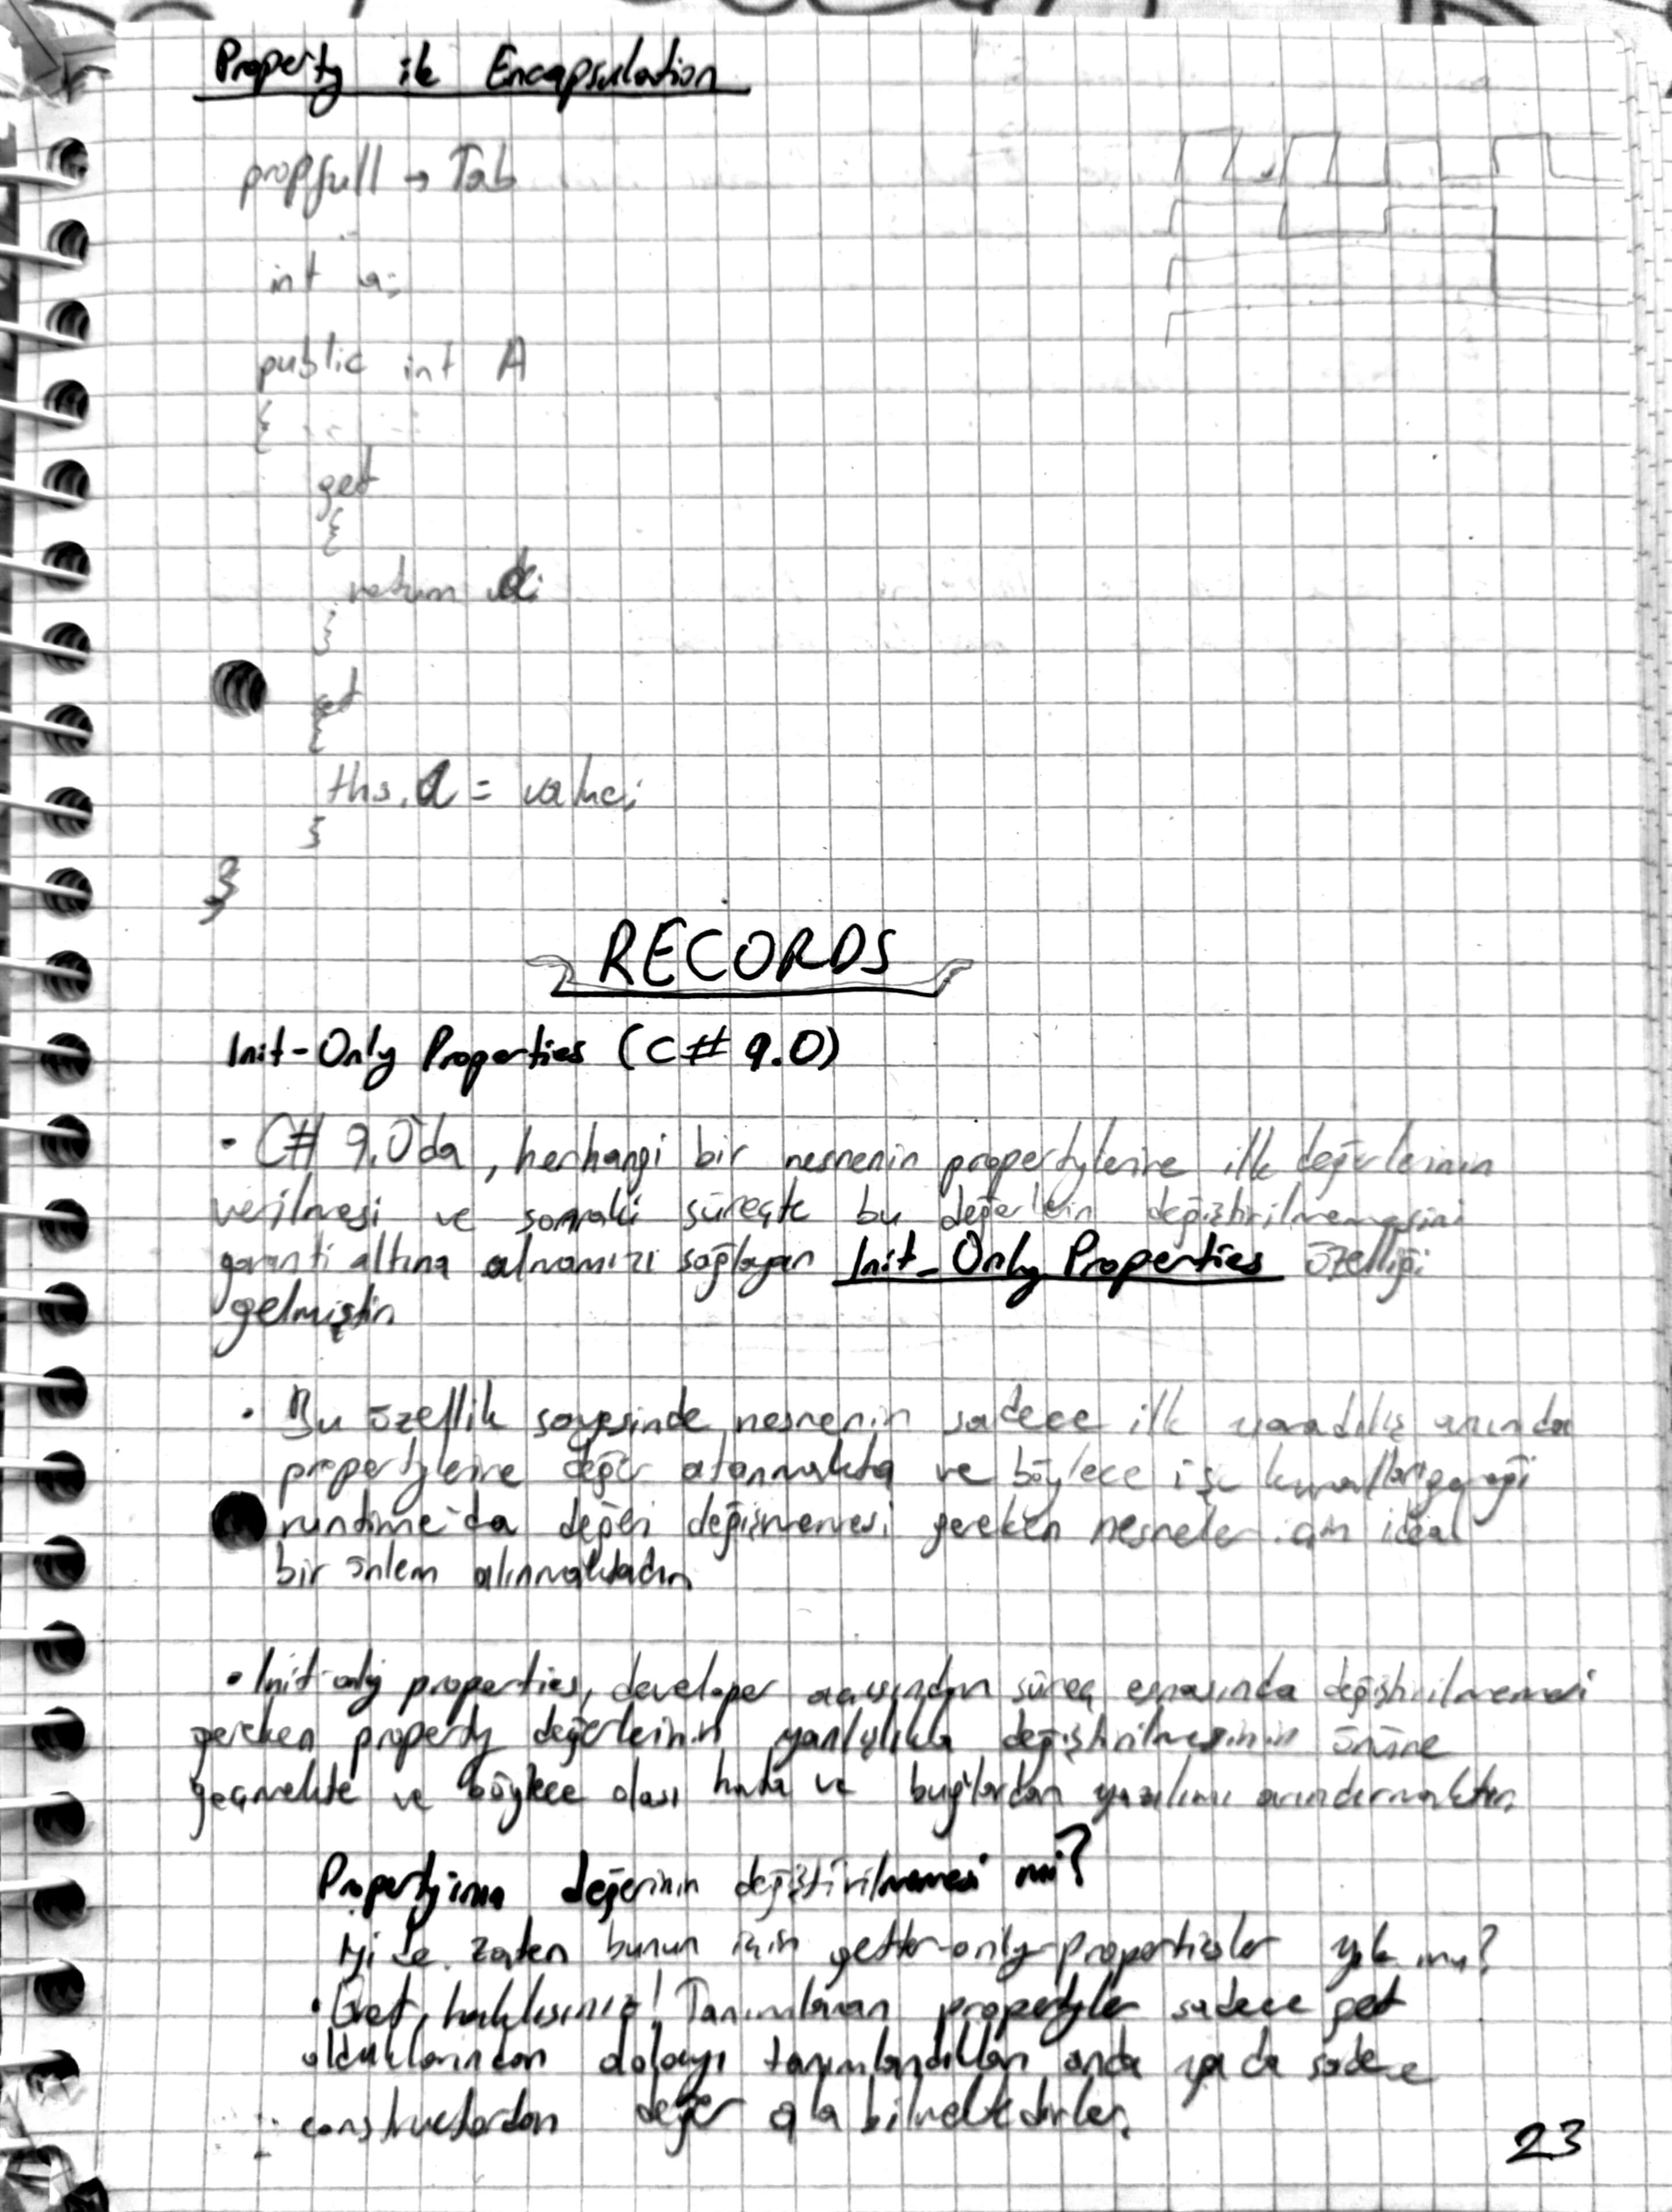 Property ile Encapsulation
propfull → Tab
int a;
public int A
{
get
{
return a;
}
set
{
this.a = value;
}
}
RECORDS
Init-Only Properties (C# 9.0)
- C# 9.0'da, herhangi bir nesnenin propertylerine ilk değerlerinin
verilmesi ve sonraki süreçte bu değerlerin değiştirilmemesini
garanti altına almamızı sağlayan Init-Only Properties özelliği
gelmiştir.
• Bu özellik sayesinde nesnenin sadece ilk yaradılış anında
propertylerine değer atanmakta ve böylece iş kuralları gereği
runtime'da değeri değişmemesi gereken nesneler için ideal
bir önlem alınmaktadır.
• Init-only properties, developer açısından süreç esnasında değiştirilmemesi
gereken property değerlerinin yanlışlıkla değiştirilmesinin önüne
geçmekte ve böylece olası hata ve buglardan yazılımı arındırmaktır.
Propertyinin değerinin değiştirilmemesi mi?
İyi de zaten bunun için getter-only-propertiesler yok mu?
• Evet, haklısınız! Tanımlanan propertyler sadece get
olduklarından dolayı tanımlandıkları anda ya da sadece
constructordan değer alabilmektedirler.
23